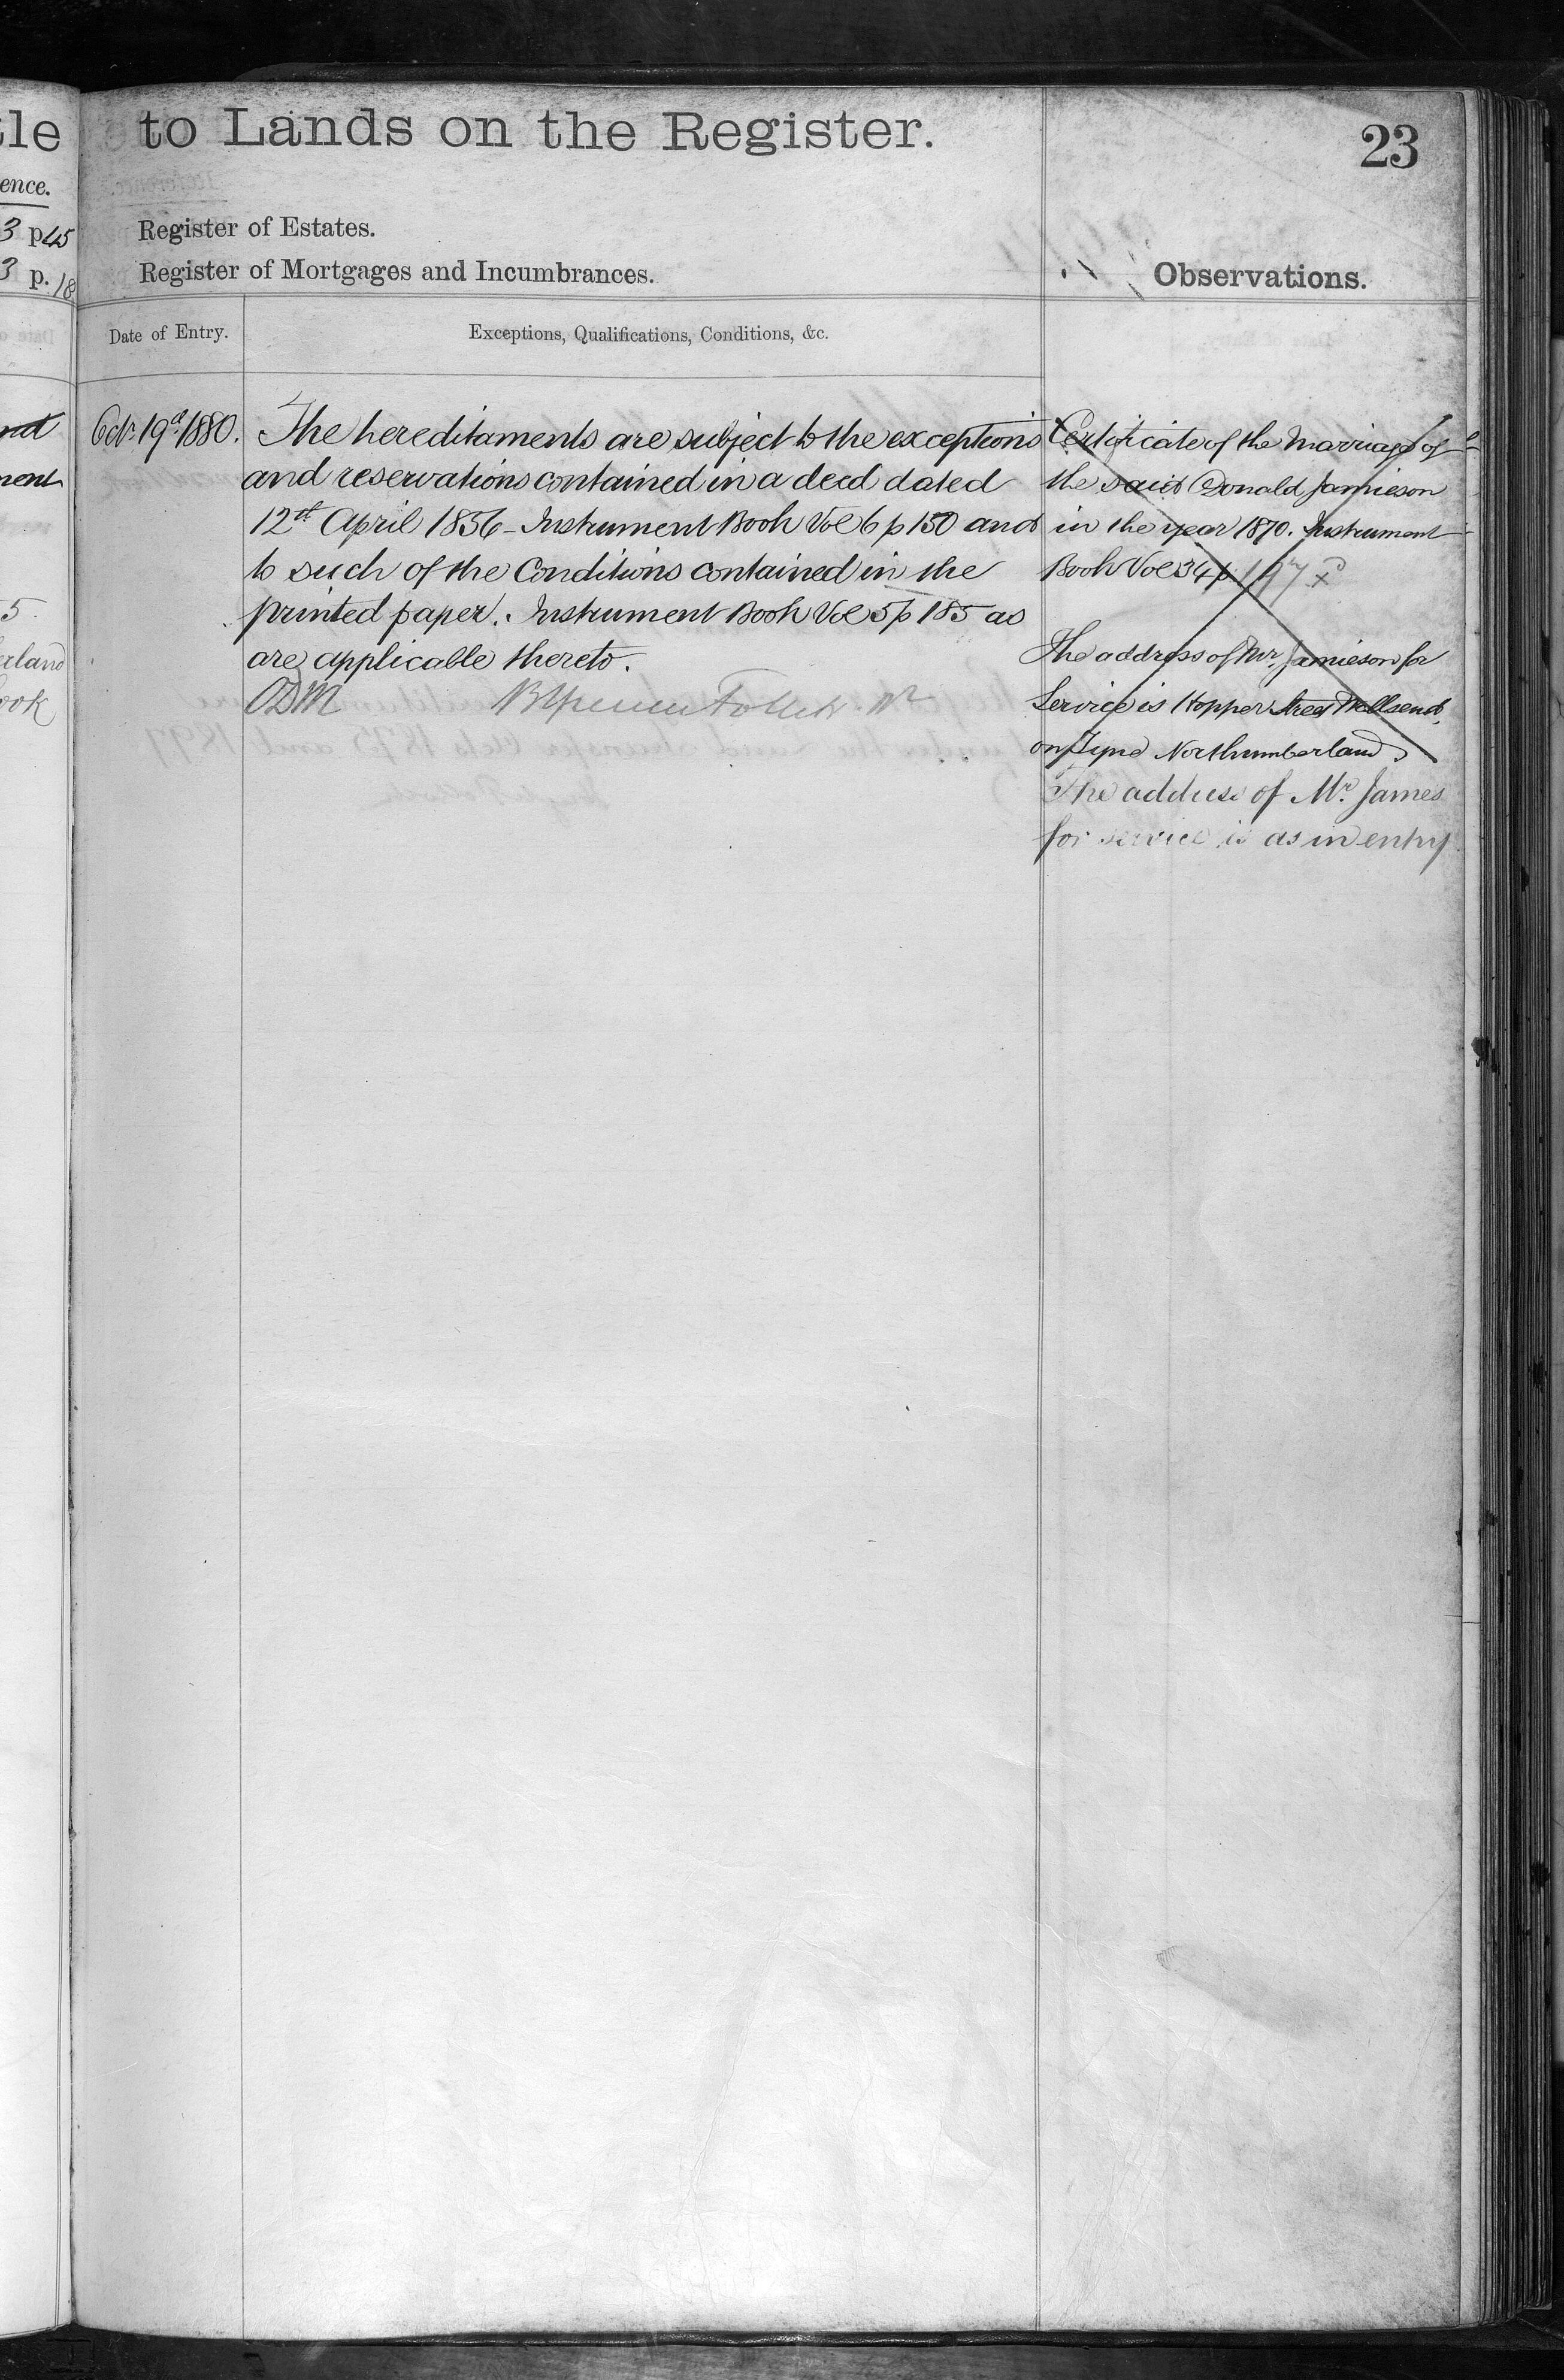 tle
ence.
3 p45
3 p. 18
ment
5.
erland
ook
to Lands on the Register.
23
Register of Estates.
Register of Mortgages and Incumbrances.
Observations.
Date of Entry.
Exceptions, Qualifications, Conditions, &c.
Oct. 19th 1880.
The hereditaments are subject to the exceptions
and reservations contained in a deed dated
12th April 1856 - Instrument Book Vol 6 p 150 and
to such of the Conditions contained in the
printed paper. Instrument Book Vol 5 p 185 as
are applicable thereto.
ODM
Certificate of the Marriage of
the said Donald Jamieson
in the year 1870. Instrument
Book Vol 34 p 197
The address of Mr. Jamieson for
Service is Hopper Street Wallsend
on Tyne Northumberland
The address of Mr. James
for service is as in entry